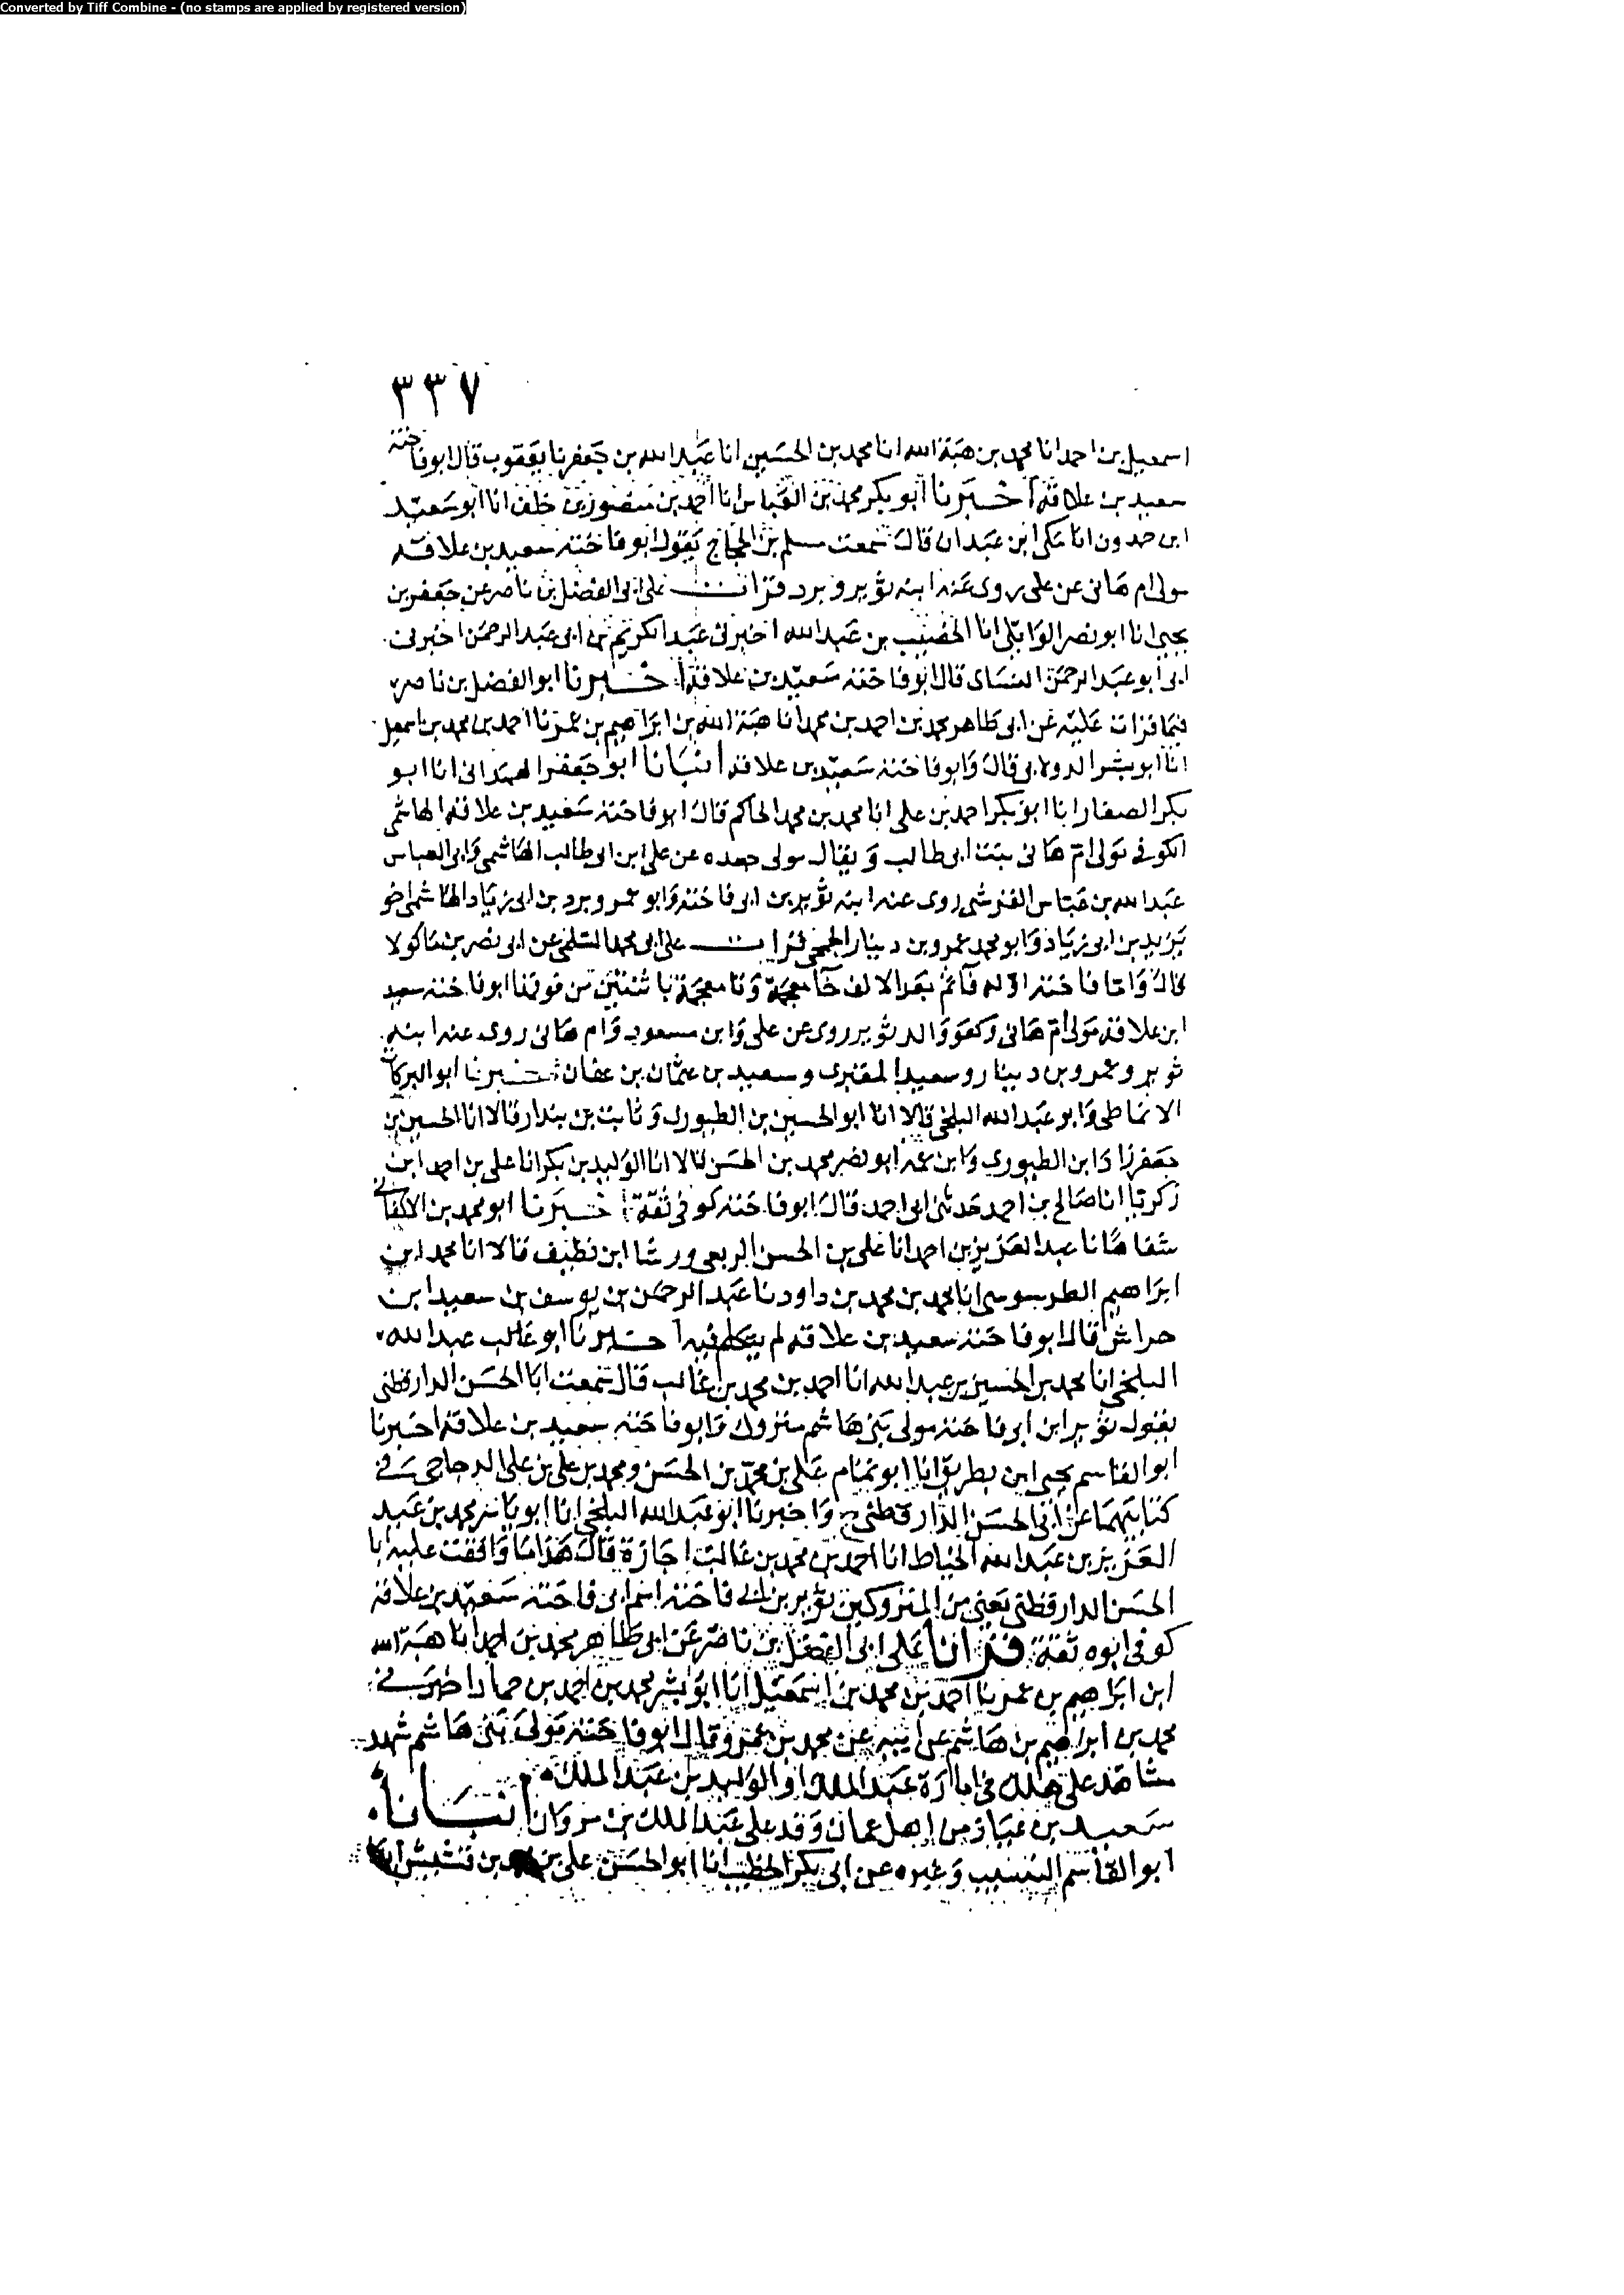 Converted by Tiff Combine - (no stamps are applied by registered version)
٣٣٧
اسمعيل بن احمد انا محمد بن هبة الله انا محمد بن الحسين انا عبد الله بن جعفر نا يعقوب قال ابو فاختة
سعيد بن علاقة اخبرنا ابو بكر محمد بن العباس انا احمد بن منصور بن خلف انا ابو سعيد
ابن حمدون انا مكى ابن عبدان قال سمعت مسلم بن الحجاج يقول ابو فاختة سعيد بن علاقة
مولى ام هانى عن على روى عنه ابنه ثوير وبرد قرات على ابى الفضل بن ناصر عن جعفر بن
يحيى انا ابو نصر الوايلى انا الخصيب بن عبد الله اخبرنى عبد الكريم بن ابى عبد الرحمن اخبرنى
ابى ابو عبد الرحمن النساى قال ابو فاختة سعيد بن علاقة اخبرنا ابو الفضل بن ناصر
فيما قرات عليه عن ابى طاهر محمد بن احمد بن محمد انا هبة الله بن ابراهيم بن عمر نا احمد بن محمد بن اسمعيل
انا ابو بشر الدولابى قال وابو فاختة سعيد بن علاقة انبانا ابو جعفر الهمدانى انا ابو
بكر الصفار انا ابو بكر احمد بن على انا محمد بن محمد الحاكم قال ابو فاختة سعيد بن علاقة الهاشمى
الكوفى مولى ام هانى بنت ابى طالب ويقال مولى جعده عن على ابن ابى طالب الهاشمى وابى العباس
عبد الله بن عباس القرشى روى عنه ابنه ثوير بن ابى فاختة وابو عمرو برد بن ابى زياد الهاشمى اخو
يزيد بن ابى زياد وابو محمد عمرو بن دينار الجمحى قرات على ابى محمد السلمى عن ابى نصر بن ماكولا
قال واما فاختة اوله فا ثم بعد الالف خا معجمة وتا معجمة باثنتين من فوقها ابو فاختة سعيد
ابن علاقة مولى ام هانى وهو والد ثوير روى عن على وابن مسعود وام هانى روى عنه ابنه
ثوير وعمرو بن دينار وسعيد المقبرى وسعيد بن عثمان بن عفان اخبرنا ابو البركات
الانماطى وابو عبد الله البلخى قالا انا ابو الحسين بن الطيورى وثابت بن بندار قالا انا الحسين بن
جعفر زاد ابن الطيورى وابن عمه ابو نصر محمد بن الحسن قالا انا الوليد بن بكر انا على بن احمد ابن
زكريا انا صالح بن احمد حدثنى ابى احمد قال ابو فاختة كوفى ثقة اخبرنا ابو محمد بن الاكفانى
شفاها نا عبد العزيز بن احمد انا على بن الحسن الربعى ورشا ابن نظيف قالا انا محمد ابن
ابراهيم الطرسوسى انا محمد بن محمد بن داود نا عبد الرحمن بن يوسف بن سعيد ابن
خراش قال ابو فاختة سعيد بن علاقة لم يتكلم فيه اخبرنا ابو غالب عبد الله
البلخى انا محمد بن الحسين بن عبد الله انا احمد بن محمد بن غالب قال سمعت ابا الحسن الدارقطنى
يقول ثوير ابن ابى فاختة مولى بنى هاشم متروك وابو فاختة سعيد بن علاقة اخبرنا
ابو القاسم يحيى ابن بطريق انا ابو تمام على بن محمد بن الحسن ومحمد بن على بن على الدجاجى فى
كتابيهما عن ابى الحسن الدارقطنى ح واخبرنا ابو عبد الله البلخى انا ابو ياسر محمد بن عبد
العزيز بن عبد الله الخياط انا احمد بن محمد بن غالب اجازة قال هذا ما وافقت عليه ابا
الحسن الدارقطنى يعنى من المتروكين ثوير بن ابى فاختة اسم ابى فاختة سعيد بن علاقة
كوفى ابوه ثقة قرانا على ابى الفضل بن ناصر عن ابى طاهر محمد بن احمد انا هبة الله
ابن ابراهيم بن عمر نا احمد بن محمد بن اسمعيل انا ابو بشر محمد بن احمد بن حماد اخبرنى
محمد بن ابراهيم بن هاشم عن ابيه عن محمد بن عمر وقال ابو فاختة مولى بنى هاشم شهد
مشاهد على هلك فى امارة عبد الملك او الوليد بن عبد الملك
سعيد بن عباد من اهل عمان وفد على عبد الملك بن مروان انبانا
ابو القاسم النسيب وغيره عن ابى بكر الخطيب انا ابو الحسن على بن بن